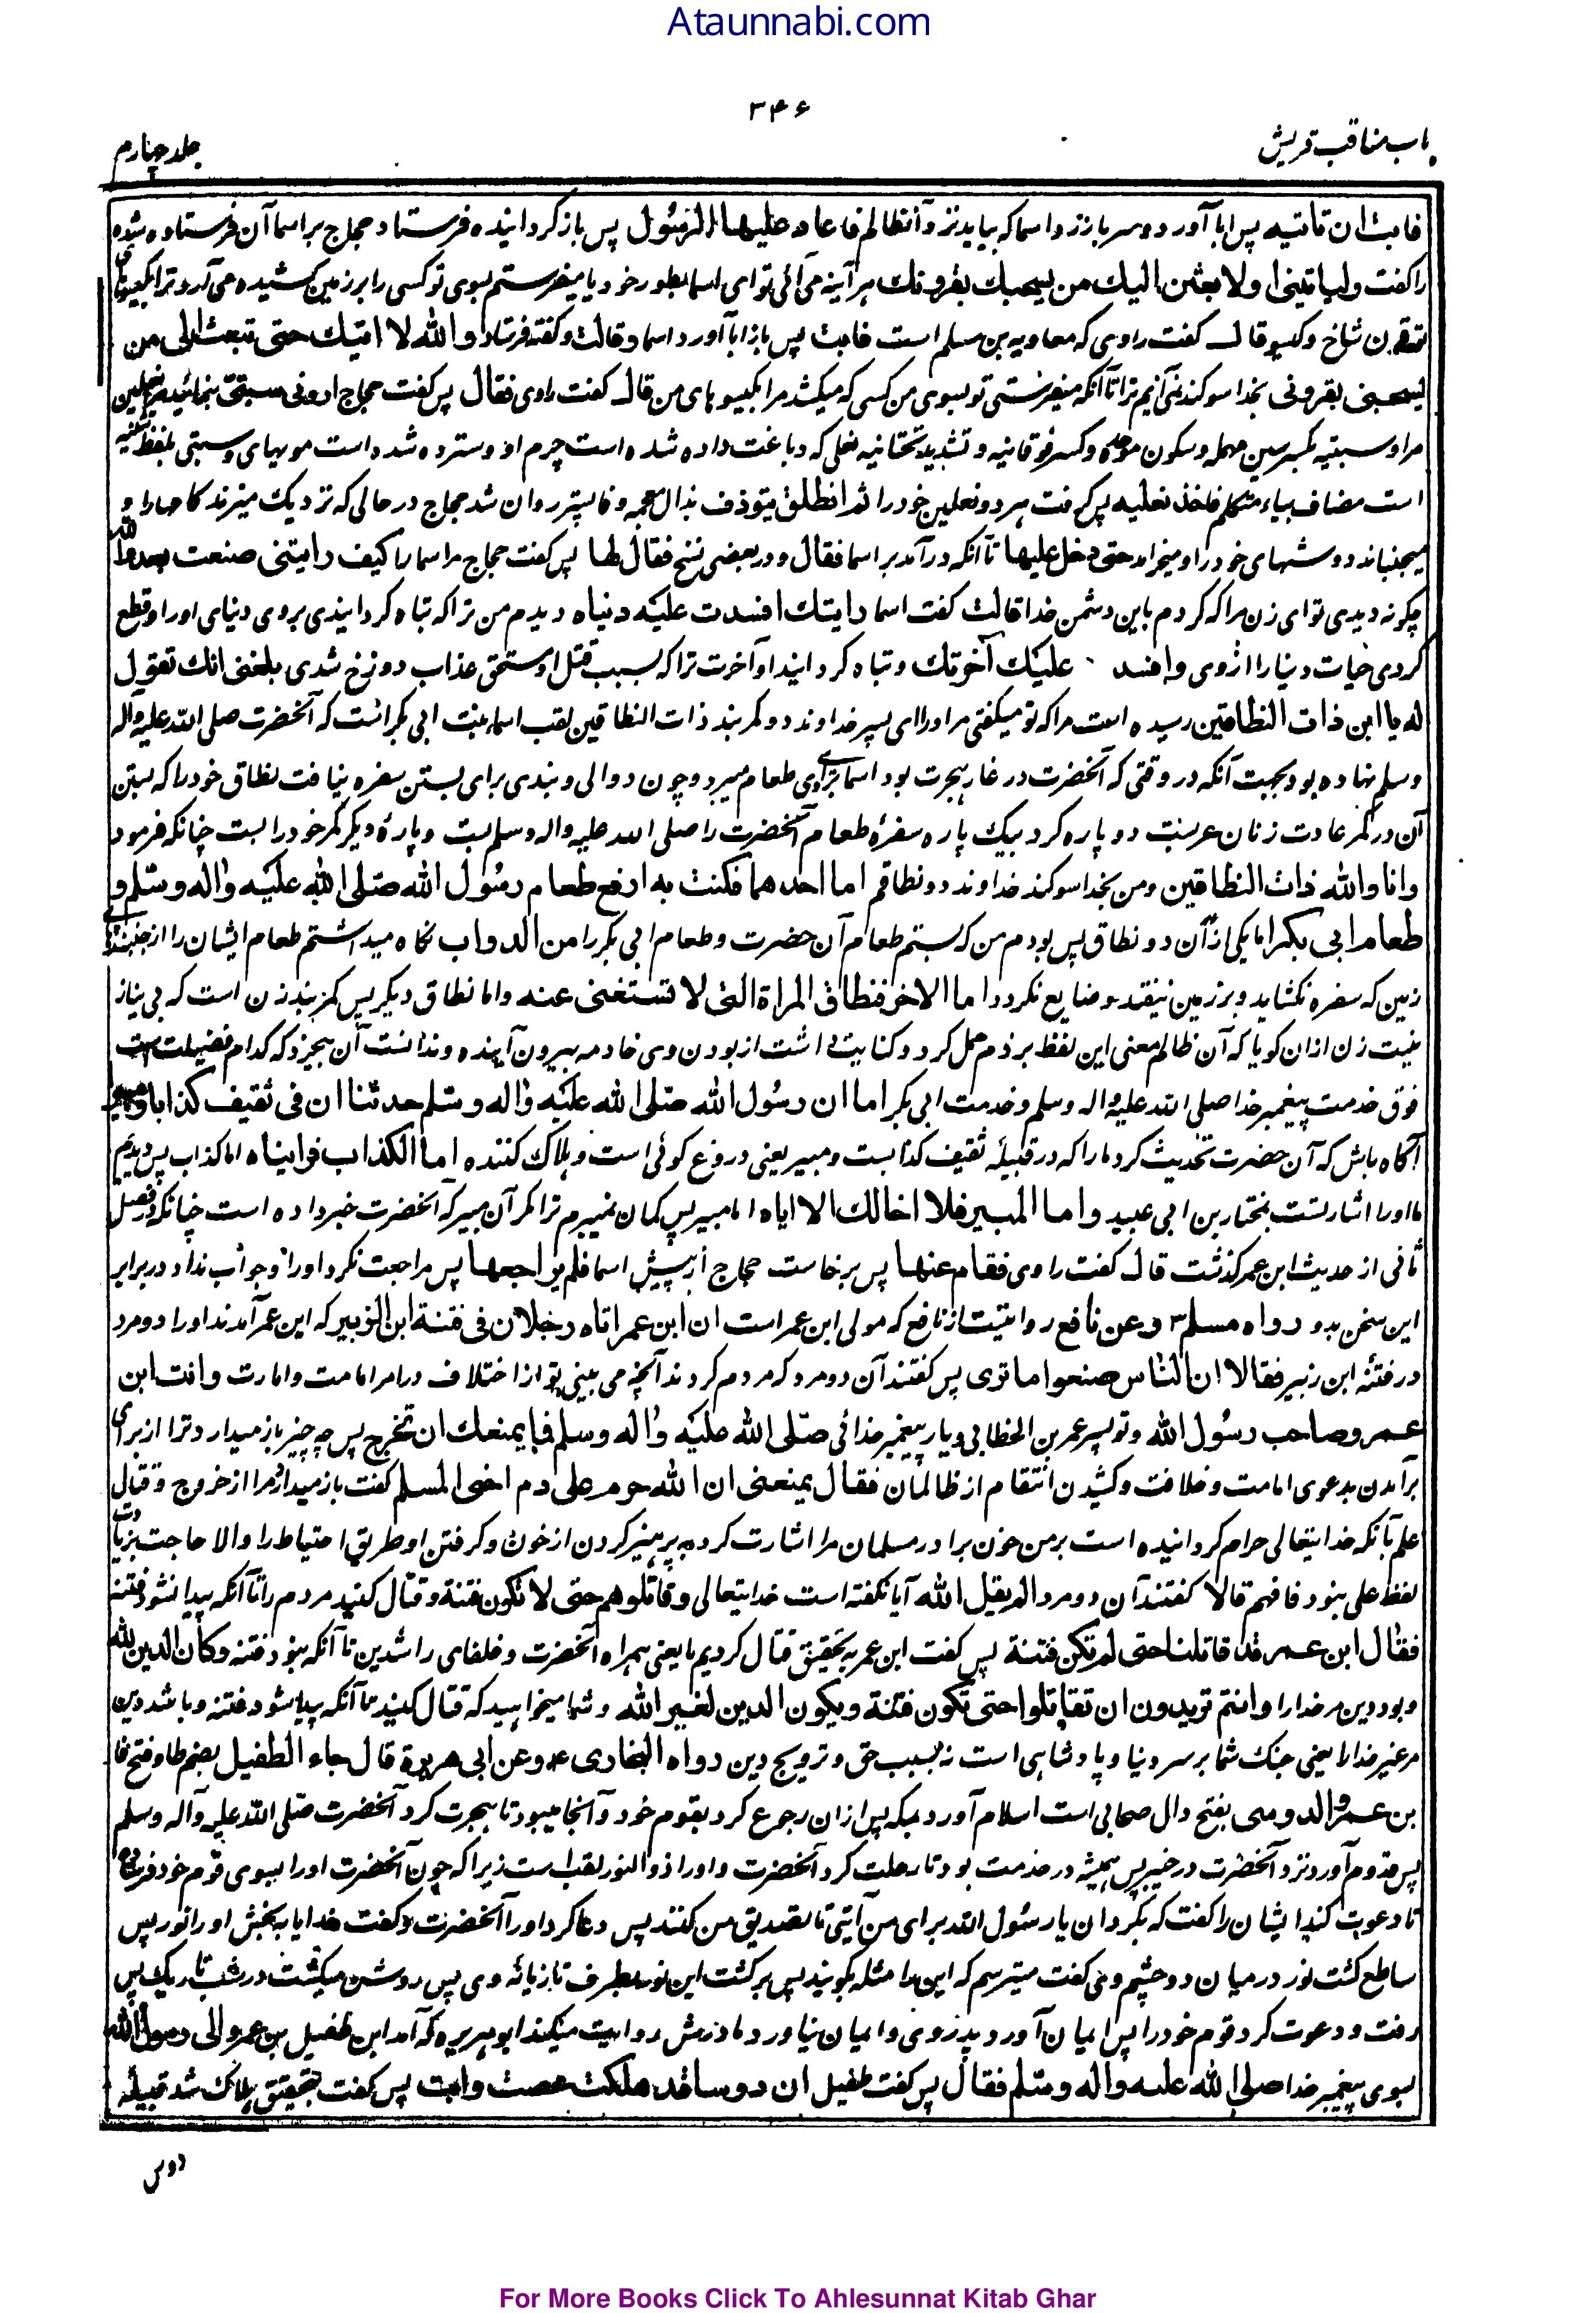 Ataunnabi.com
۳۴۶
باب مناقب قریش
جلد چهارم
فابت ان تأتیه پس ابا آورد و سر باز زد اسما که بیاید نزد آن ظالم فاعاد علیها الرسول پس باز گردانیده فرستاد حجاج بر اسما آن فرستاده شده
را گفت و لتأتینی او لابعثن الیک من یسحبک بقرونک هر آینه می آئی تو ای اسما بطور خود یا میفرستم بسوی تو کسی را بر زمین کشیده می آرد ترا بگیسوهای
تو قرن شاخ و گیسو قال گفت راوی که معاویه بن مسلم است فابت پس باز ابا آورد اسما و قالت و گفته فرستاد والله لا اتیک حتی تبعث الی من
یسحبنی بقرونی بخدا سوگند نمی آیم ترا تا آنکه میفرستی تو بسوی من کسی که میکشد مرا بگیسوهای من قال گفت راوی فقال پس گفت حجاج ارونی سبتیّ بنمائید نعلین
مرا و سبتیه بکسر سین مهمله و سکون موحده و کسر فوقانیه و تشدید تحتانیه نعلی که دباغت داده شده است چرم او و سترده شده است مویهای و سبتی بلفظ تثنیه
است مضاف بیاء متکلم فاخذ نعلیه پس گرفت هر دو نعلین خود را ثم انطلق یتوذف بذال معجمه و فا پستر روان شد حجاج در حالی که نزدیک میزند گامها را و
میجنباند دوشهای خود را و میخرامد حتی دخل علیها تا آنکه درآمد بر اسما فقال و در بعضی نسخ فقال لها پس گفت حجاج مر اسما را کیف رایتنی صنعت بعدو الله
چگونه دیدی تو ای زن مرا که کردم باین دشمن خدا قالت گفت اسما رایتک افسدت علیه دنیاه دیدم من ترا که تباه گردانیدی بروی دنیای او را و قطع
کردی حیات دنیا را ازوی وافسد علیک آخرتک و تباه گردانید او آخرت ترا که بسبب قتل او مستحق عذاب دوزخ شدی بلغنی انک تقول
له یا ابن ذات النطاقین رسیده است مرا که تو میگفتی مر او را ای پسر خداوند دو کمربند ذات النطاقین لقب اسما بنت ابی بکر است که آنحضرت صلی الله علیه وآله
وسلم نهاده بود بجهت آنکه در وقتی که آنحضرت در غار هجرت بود اسما برای وی طعام میبرد و چون دوالی و بندی برای بستن سفره نیافت نطاق خود را که بستن
آن در کمر عادت زنان عربست دو پاره کرد بیک پاره سفرۀ طعام آنحضرت را صلی الله علیه واله وسلم بست و پارۀ دیگر کمر خود را بست چنانکه فرمود
وانا والله ذات النطاقین و من بخدا سوگند خداوند دو نطاقم اما احدهما فکنت به ارفع طعام رسول الله صلی الله علیه واله وسلم و
طعام ابی بکر اما یکی از آن دو نطاق پس بودم من که بستم طعام آن حضرت و طعام ابی بکر را من الدواب نگاه میداشتم طعام ایشان را از جنبندهای
زمین که سفره نکشاید و بر زمین نیفتد و ضایع نگردد اما الاخر فنطاق المراة التی لا تستغنی عنه و اما نطاق دیگر پس کمربند زن است که بی نیاز
نیست زن ازان گویا که آن ظالم معنی این لفظ بر ذم حمل کرد و کنایت داشت از بودن وی خادمه بیرون آینده و ندانست آن بیخرد که کدام فضیلت است
فوق خدمت پیغمبر خدا صلی الله علیه واله وسلم و خدمت ابی بکر اما ان رسول الله صلی الله علیه واله وسلم حدثنا ان فی ثقیف کذابا و مبیرا
آگاه باش که آن حضرت تحدیث کرد ما را که در قبیلۀ ثقیف کذابست و مبیر یعنی دروغ گوئی است و هلاک کننده اما الکذاب فرایناه اما کذاب پس دیدیم
ما او را اشارتست بمختار بن ابی عبید واما المبیر فلا اخالک الا ایاه اما مبیر پس گمان نمیبرم ترا مگر آن مبیر که آنحضرت خبر داده است چنانکه در فصل
ثانی از حدیث ابن عمر گذشت قال گفت راوی فقام عنها پس برخاست حجاج از پیش اسما فلم یراجعها پس مراجعت نکرد او را و جواب نداد در برابر
این سخن بدو رواه مسلم ۳ وعن نافع روایتست از نافع که مولی ابن عمر است ان ابن عمر اتاه رجلان فی فتنة ابن الزبیر که ابن عمر آمدند او را دو مرد
در فتنه ابن زبیر فقالا ان الناس صنعوا ما تری پس گفتند آن دو مرد که مردم کردند آنچه می بینی تو از اختلاف در امر امامت و امارت وانت ابن
عمر وصاحب رسول الله و تو پسر عمر بن الخطابی و یار پیغمبر خدائی صلی الله علیه واله وسلم فما یمنعک ان تخرج پس چه چیز باز میدارد ترا از برای
برآمدن بدعوی امامت و خلافت و کشیدن انتقام از ظالمان فقال یمنعنی ان الله حرم علی دم اخی المسلم گفت باز میدارد مرا از خروج و قتال
علم بآنکه خدایتعالی حرام گردانیده است بر من خون برادر مسلمان مرا اشارت کرد به پرهیز کردن از خون و گرفتن او طریق احتیاط را والا حاجت بزیادت
لفظ علی نبود فافهم قالا گفتند آن دو مرد الم یقل الله آیا نگفته است خدایتعالی وقاتلوهم حتی لا تکون فتنة و قتال کنید مردم را تا آنکه پیدا نشود فتنه
فقال ابن عمر قد قاتلنا حتی لم تکن فتنة پس گفت ابن عمر بتحقیق قتال کردیم ما یعنی همراه آنحضرت و خلفای راشدین تا آنکه نبود فتنه وکان الدین لله
و بود دین مر خدا را وانتم تریدون ان تقاتلوا حتی تکون فتنة ویکون الدین لغیر الله و شما میخواهید که قتال کنید تا آنکه پیدا شود فتنه و باشد دین
مر غیر خدا را یعنی جنگ شما بر سر دنیا و پادشاهی است نه بسبب حق و ترویج دین رواه البخاری ۴ وعن ابی هریرة قال جاء الطفیل بضم طا و فتح فا
بن عمرو الدوسی بفتح دال صحابی است اسلام آورد بمکه پس ازان رجوع کرد بقوم خود و آنجا میبود تا هجرت کرد آنحضرت صلی الله علیه وآله وسلم
پس قدوم آورد نزد آنحضرت در خیبر پس همیشه در خدمت بود تا رحلت کرد آنحضرت و او را ذوالنور لقب است زیرا که چون آنحضرت او را بسوی قوم خود فرستاد
تا دعوت کند ایشان را گفت که بگردان یا رسول الله برای من آیتی تا تصدیق من کنند پس دعا کرد او را آنحضرت و گفت خدایا ببخش او را نور پس
ساطع گشت نور در میان دو چشم وی گفت میترسم که این را مثله گویند پس برگشت این نور بطرف تازیانه وی پس روشن میگشت در شب تاریک پس
رفت و دعوت کرد قوم خود را پس ایمان آورد پدر وی و ایمان نیاورد مادرش روایت میکند ابو هریره که آمد ابن طفیل بن عمرو الی رسول الله
بسوی پیغمبر خدا صلی الله علیه واله وسلم فقال پس گفت طفیل ان دوسا قد هلکت عصت وابت پس گفت بتحقیق هلاک شد قبیله
دوس
For More Books Click To Ahlesunnat Kitab Ghar